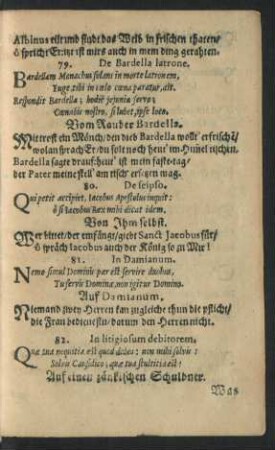 Albinus eilt und findt das Weib in frischen thaten/
ô spricht Er: itzt ist mirs auch in mein ding gerahten.
79. De Bardella latrone.
Bardellam Monachus solans in morte latronem,
Euge tibi in cœlo cœna paratur, ait.
Respondit Bardella; hodie jejunia servo;
Cœnabis nostro, si lubet, ipse loco.
Vom Rauber Bardella.
Mit trost ein Mönch/ den dieb Bardella wollt' erfrischē/
wolan sprach Er/ du solt noch heut' im Himel tischen.
Bardella sagte drauf: heut' ist mein fast-tag/
der Pater meine stell' am tisch' ersetzen mag.
80. De seipso.
Qui petit accipiet, Iacobus Apostolus inquit:
ô si Iacobus Rex mihi dicat idem.
Von Ihm selbst.
Wer bittet/ der empfängt/ giebt Sanct Jacobus für/
ô spräch Iacobus auch der König so zu Mir!
81. In Damianum.
Nemo simul Dominis par est servire duobus,
Tu servis Dominæ, non igitur Domino.
Auf Damianum.
Niemand zwey Herren kan zugleiche thun die pflicht/
die Frau bedienestu/ darum den Herren nicht.
82. In litigiosum debitorem.
Quæ tua nequitia est quod debes: non mihi solvis:
Solvis Causidico; quæ tua stultitia est!
Auf einen zänkischen Schuldner.
Was